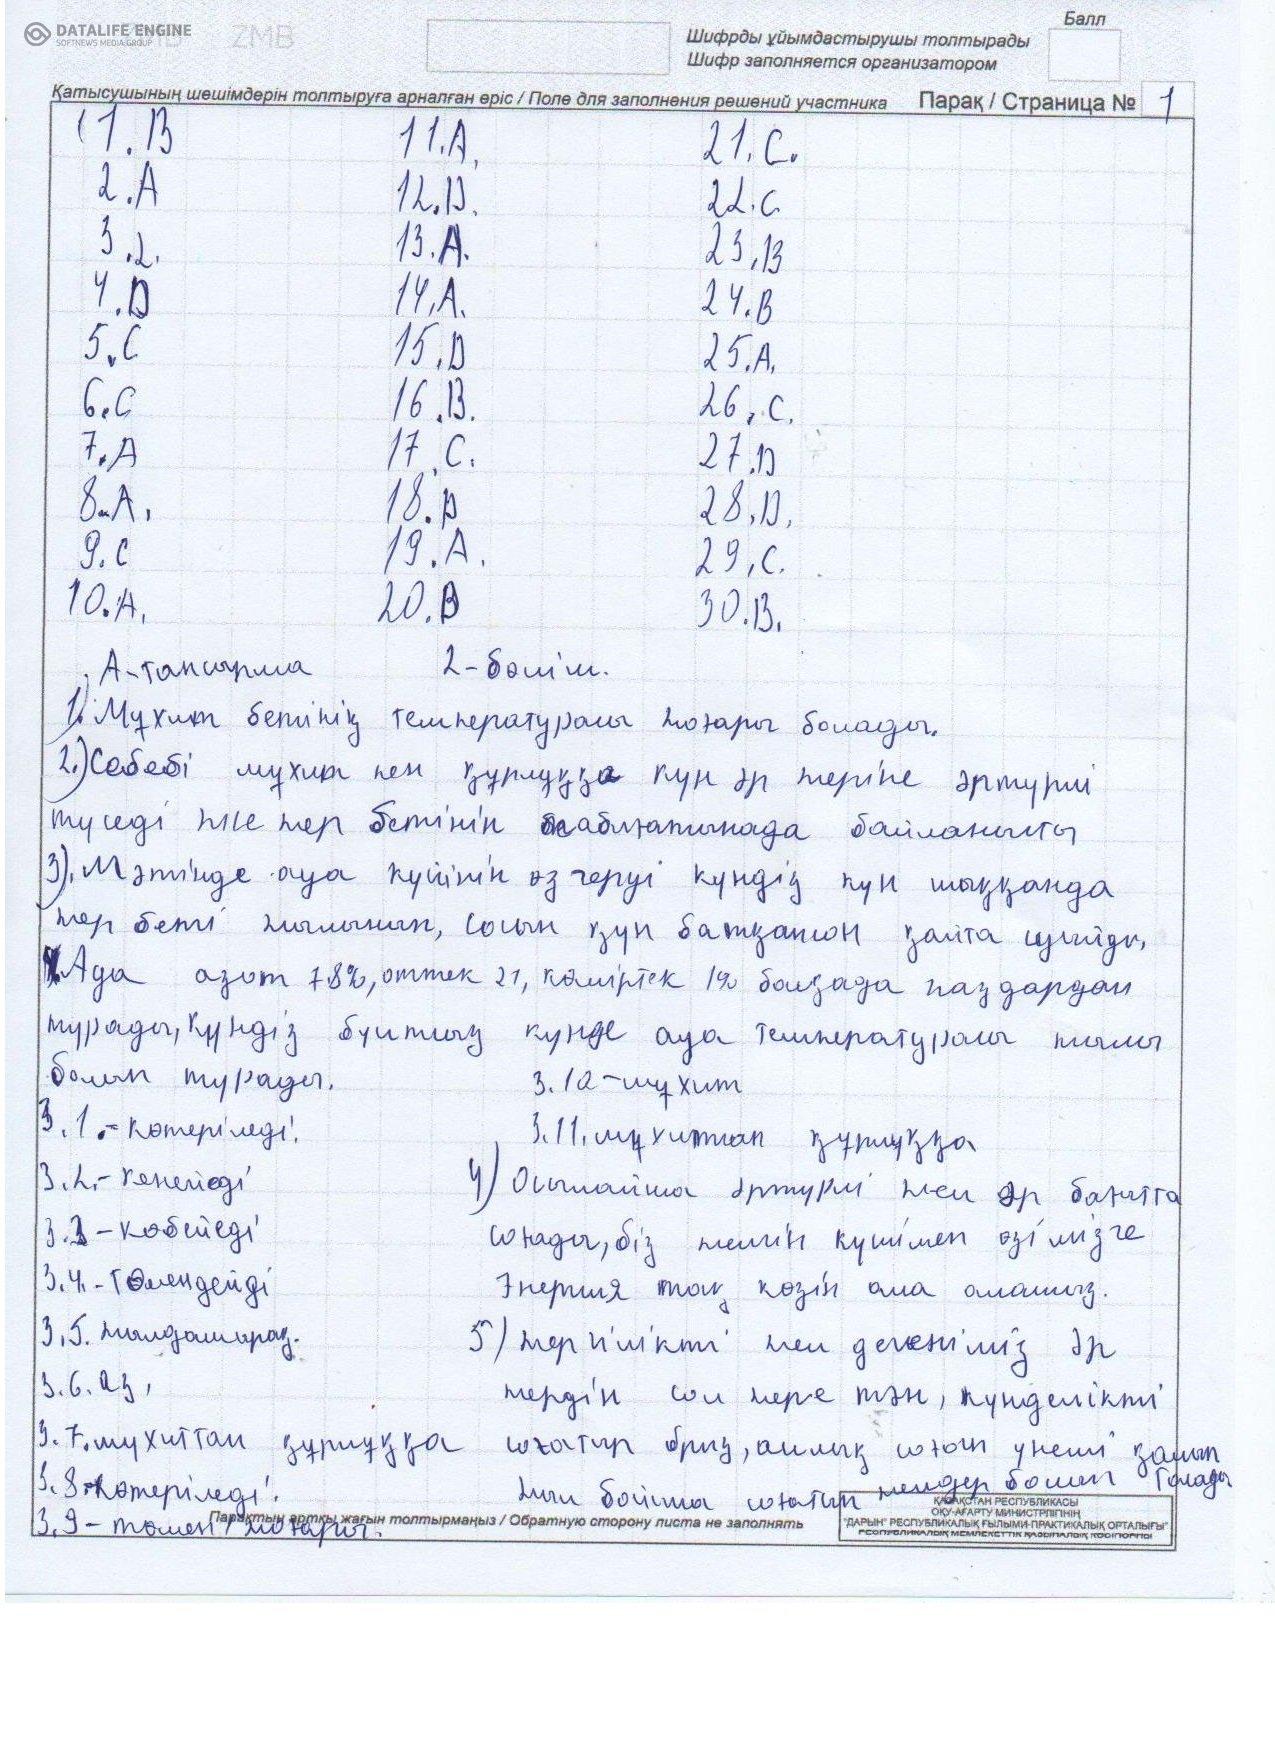 DATALIFE ENGINE
SOFTNEWS MEDIA GROUP
ZMB
Балл
Шифрды ұйымдастырушы толтырады
Шифр заполняется организатором
Қатысушының шешімдерін толтыруға арналған өріс / Поле для заполнения решений участника
Парақ / Страница № 1
1. B
2. A
3. 2.
4. D
5. C
6. C
7. A
8. A.
9. C
10. A.
11. A.
12. D.
13. A.
14. A.
15. D
16. B.
17. C.
18. D
19. A.
20. B
21. C.
22. C
23. B
24. B
25. A.
26. C.
27. D
28. D.
29. C.
30. B.
А-тапсырма 2-бөлім.
1) Мұхит бетінің температурасы жоғары болады.
2.) Себебі мұхит пен құрлыққа күн әр жеріне әртүрлі
түседі және жер бетінің байланысты
3). Мәтінде ауа күйінің өзгеруі күндіз күн шыққанда
жер беті жылынып, сосын күн батқасон қайта суыйды.
Ауа азот 78%, оттек 21, көміртек 1% басқада газдардан
турады, күндіз бұлтсыз күнде ауа температурасы жылы
болып турады.
3.1.- Көтеріледі.
3.2.- кенейеді
3.3 - көбейеді
3.4.- Төмендейді
3.5. жылдамырақ.
3.6. аз,
3.7. мұхиттан құрлыққа
3.8. - көтеріледі.
3.9 - төмен, жоғары.
3.10 - мұхит
3.11. мұхиттан құрлыққа
4) Осылайша әртүрлі жел әр бағытта
соғады, біз желдің күшімен өзімізге
Энергия тоқ көзін ала аламыз.
5) жергілікті жел дегеніміз әр
жердің сол жерге тән, күнделікті
соғатын бриз, айлық соғып үнемі
жыл бойына соғатын желдер болып Табылады
Парақтың артқы жағын толтырмаңыз / Обратную сторону листа не заполнять
ҚАЗАҚСТАН РЕСПУБЛИКАСЫ
ОҚУ-АҒАРТУ МИНИСТРЛІГІНІҢ
"ДАРЫН" РЕСПУБЛИКАЛЫҚ ҒЫЛЫМИ-ПРАКТИКАЛЫҚ ОРТАЛЫҒЫ"
РЕСПУБЛИКАЛЫҚ МЕМЛЕКЕТТІК ҚАЗЫНАЛЫҚ КӘСІПОРНЫ